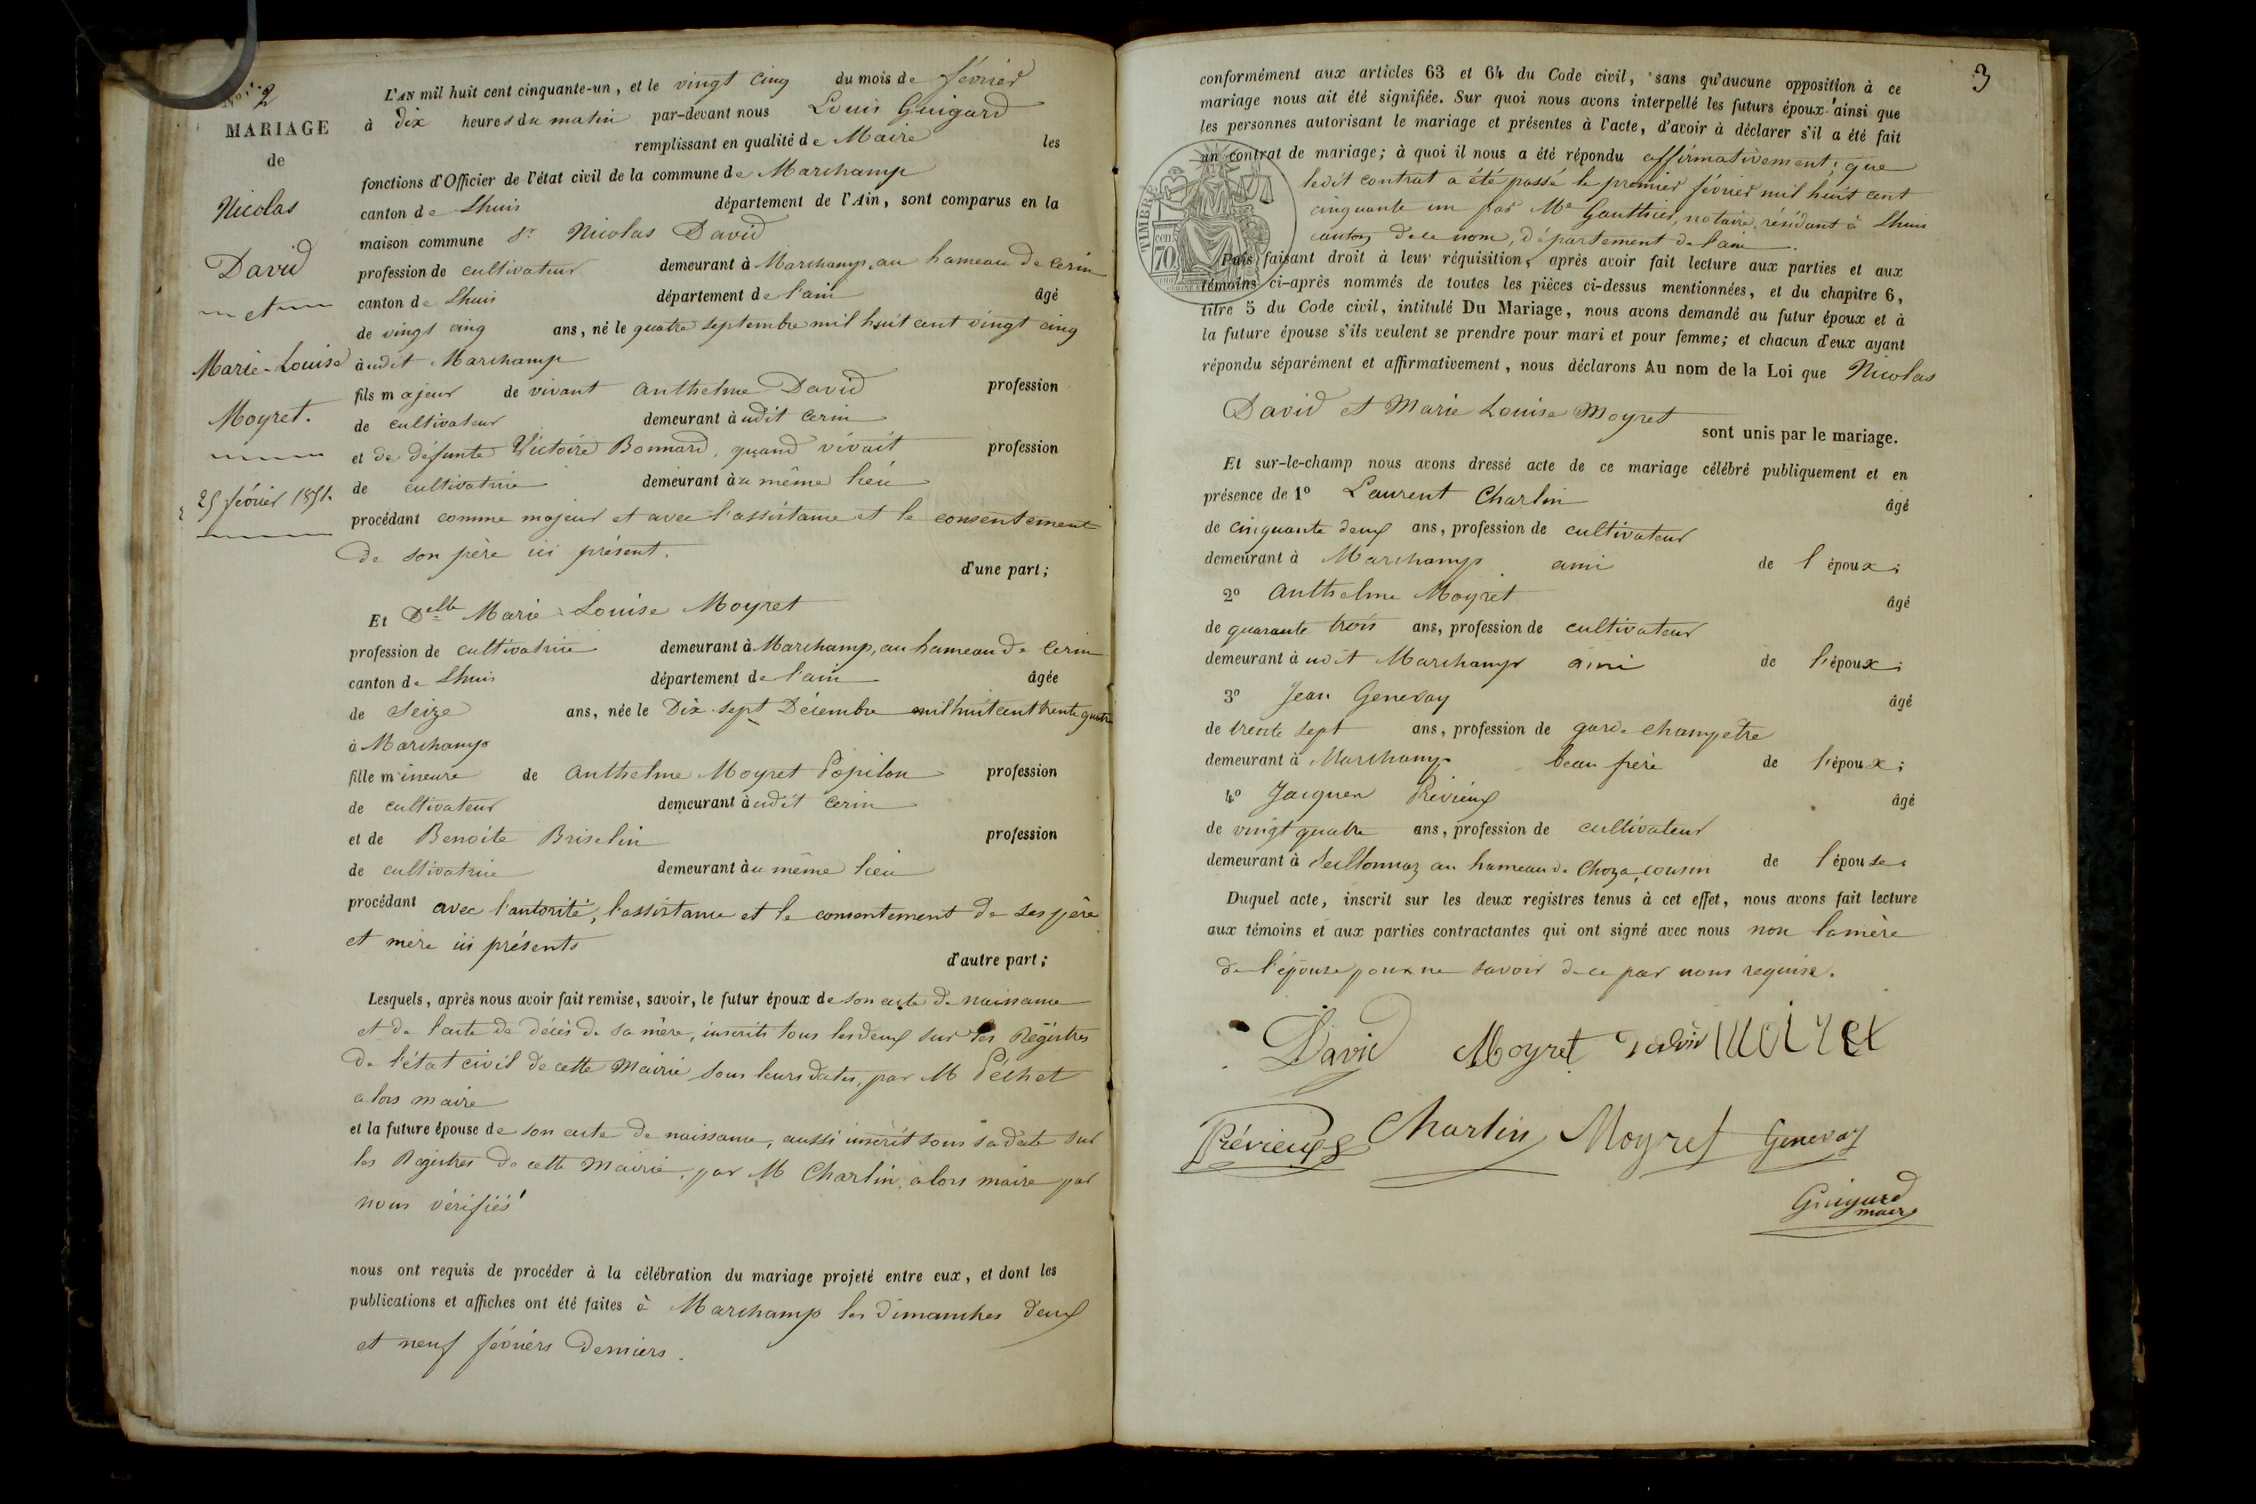 N° 2
MARIAGE
de
Nicolas
David
et
Marie-Louise
Moyret.
25 février 1851.
L'AN mil huit cent cinquante-un, et le vingt cinq du mois de février
à dix heures du matin par-devant nous Louis Guigard
remplissant en qualité de Maire les
fonctions d'Officier de l'état civil de la commune de Marchamp
canton de Lhuis département de l'Ain, sont comparus en la
maison commune Sr Nicolas David
profession de cultivateur demeurant à Marchamp, au hameau de Cerin
canton de Lhuis département de l'ain âgé
de vingt cinq ans, né le quatre septembre mil huit cent vingt cinq
àudit Marchamp
fils majeur de vivant Anthelme David profession
de cultivateur demeurant àudit Cerin
et de défunte Victoire Bonnard, quand vivait profession
de cultivatrice demeurant àu même lieu
procédant comme majeur et avec l'assistance et le consentement
de son père ici présent.
d'une part;
Et Delle Marie-Louise Moyret
profession de cultivatrice demeurant à Marchamp, au hameau de Cerin
canton de Lhuis département de l'ain âgée
de seize ans, née le Dix-sept Décembre mil huit cent trente quatre
à Marchamp
fille mineure de Anthelme Moyret Popilon profession
de cultivateur demeurant àudit Cerin
et de Benoite Briselin profession
de cultivatrice demeurant àu même lieu
procédant avec l'autorité, l'assistance et le consentement de ses père
et mère ici présents
d'autre part;
Lesquels, après nous avoir fait remise, savoir, le futur époux de son acte de naissance
et de l'acte de décès de sa mère, inscrits tous les deux sur les Régistres
de l'état civil de cette Mairie sous leurs dates, par M Péchet
alors maire
et la future épouse de son acte de naissance, aussi inscrit sous sa date sur
les Registres de cette Mairie, par M Charlin, alors maire par
nous vérifiés
nous ont requis de procéder à la célébration du mariage projeté entre eux, et dont les
publications et affiches ont été faites à Marchamp les dimanches deux
et neuf févriers derniers.
3
conformément aux articles 63 et 64 du Code civil, sans qu'aucune opposition à ce
mariage nous ait été signifiée. Sur quoi nous avons interpellé les futurs époux ainsi que
les personnes autorisant le mariage et présentes à l'acte, d'avoir à déclarer s'il a été fait
un contrat de mariage; à quoi il nous a été répondu affirmativement; que
ledit contrat a été passé le premier février mil huit cent
cinquante un par Me Gauthier, notaire, résidant à Lhuis
canton de ce nom, département de l'ain
TIMBRE
70 cen.
Puis faisant droit à leur réquisition, après avoir fait lecture aux parties et aux
témoins ci-après nommés de toutes les pièces ci-dessus mentionnées, et du chapitre 6,
titre 5 du Code civil, intitulé Du Mariage, nous avons demandé au futur époux et à
la future épouse s'ils veulent se prendre pour mari et pour femme; et chacun d'eux ayant
répondu séparément et affirmativement, nous déclarons Au nom de la Loi que Nicolas
David et Marie Louise Moyret
sont unis par le mariage.
Et sur-le-champ nous avons dressé acte de ce mariage célébré publiquement et en
présence de 1° Laurent Charlin âgé
de cinquante deux ans, profession de cultivateur
demeurant à Marchamp ami de l'époux;
2° Anthelme Moyret âgé
de quarante trois ans, profession de cultivateur
demeurant àudit Marchamp ami de l'époux;
3° Jean Genevay âgé
de trente sept ans, profession de garde champetre
demeurant à Marchamp beau frère de l'époux;
4° Jacques Prévieux âgé
de vingt quatre ans, profession de cultivateur
demeurant à Seillonnaz au hameau de Choza, cousin de l'épouse.
Duquel acte, inscrit sur les deux registres tenus à cet effet, nous avons fait lecture
aux témoins et aux parties contractantes qui ont signé avec nous non la mère
de l'épouse pour ne savoir de ce par nous requise.
David Moyret David Moiret
Prévieux Charlin Moyret Genevay
Guigard
maire